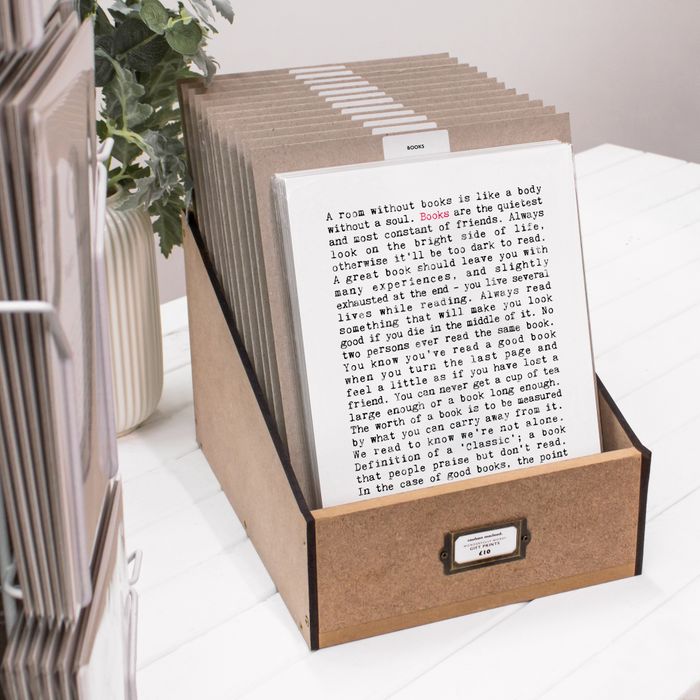 BOOKS
A room without books is like a body
without a soul. Books are the quietest
and most constant of friends. Always
look on the bright side of life,
otherwise it'll be too dark to read.
A great book should leave you with
many experiences, and slightly
exhausted at the end - you live several
lives while reading. Always read
something that will make you look
good if you die in the middle of it. No
two persons ever read the same book.
You know you've read a good book
when you turn the last page and
feel a little as if you have lost a
friend. You can never get a cup of tea
large enough or a book long enough.
The worth of a book is to be measured
by what you can carry away from it.
We read to know we're not alone.
Definition of a 'Classic'; a book
that people praise but don't read.
In the case of good books, the point
GIFT PRINTS
£10